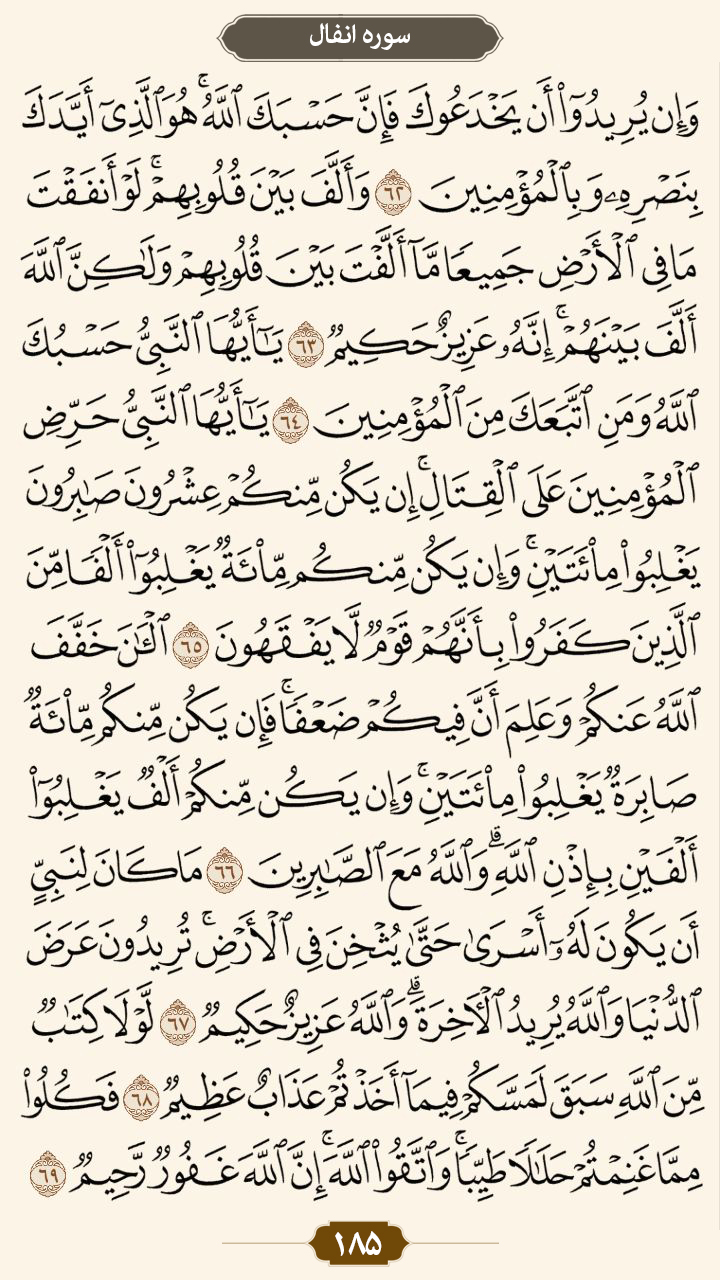 سوره انفال
وَإِن يُرِيدُوٓا۟ أَن يَخْدَعُوكَ فَإِنَّ حَسْبَكَ ٱللَّهُ ۚ هُوَ ٱلَّذِىٓ أَيَّدَكَ
بِنَصْرِهِۦ وَبِٱلْمُؤْمِنِينَ ٦٢ وَأَلَّفَ بَيْنَ قُلُوبِهِمْ ۚ لَوْ أَنفَقْتَ
مَا فِى ٱلْأَرْضِ جَمِيعًا مَّآ أَلَّفْتَ بَيْنَ قُلُوبِهِمْ وَلَـٰكِنَّ ٱللَّهَ
أَلَّفَ بَيْنَهُمْ ۚ إِنَّهُۥ عَزِيزٌ حَكِيمٌ ٦٣ يَـٰٓأَيُّهَا ٱلنَّبِىُّ حَسْبُكَ
ٱللَّهُ وَمَنِ ٱتَّبَعَكَ مِنَ ٱلْمُؤْمِنِينَ ٦٤ يَـٰٓأَيُّهَا ٱلنَّبِىُّ حَرِّضِ
ٱلْمُؤْمِنِينَ عَلَى ٱلْقِتَالِ ۚ إِن يَكُن مِّنكُمْ عِشْرُونَ صَـٰبِرُونَ
يَغْلِبُوا۟ مِا۟ئَتَيْنِ ۚ وَإِن يَكُن مِّنكُم مِّا۟ئَةٌ يَغْلِبُوٓا۟ أَلْفًا مِّنَ
ٱلَّذِينَ كَفَرُوا۟ بِأَنَّهُمْ قَوْمٌ لَّا يَفْقَهُونَ ٦٥ ٱلْـَٔـٰنَ خَفَّفَ
ٱللَّهُ عَنكُمْ وَعَلِمَ أَنَّ فِيكُمْ ضَعْفًا ۚ فَإِن يَكُن مِّنكُم مِّا۟ئَةٌ
صَابِرَةٌ يَغْلِبُوا۟ مِا۟ئَتَيْنِ ۚ وَإِن يَكُن مِّنكُمْ أَلْفٌ يَغْلِبُوٓا۟
أَلْفَيْنِ بِإِذْنِ ٱللَّهِ ۗ وَٱللَّهُ مَعَ ٱلصَّـٰبِرِينَ ٦٦ مَا كَانَ لِنَبِىٍّ
أَن يَكُونَ لَهُۥٓ أَسْرَىٰ حَتَّىٰ يُثْخِنَ فِى ٱلْأَرْضِ ۚ تُرِيدُونَ عَرَضَ
ٱلدُّنْيَا وَٱللَّهُ يُرِيدُ ٱلْـَٔاخِرَةَ ۗ وَٱللَّهُ عَزِيزٌ حَكِيمٌ ٦٧ لَّوْلَا كِتَـٰبٌ
مِّنَ ٱللَّهِ سَبَقَ لَمَسَّكُمْ فِيمَآ أَخَذْتُمْ عَذَابٌ عَظِيمٌ ٦٨ فَكُلُوا۟
مِمَّا غَنِمْتُمْ حَلَـٰلًا طَيِّبًا ۚ وَٱتَّقُوا۟ ٱللَّهَ ۚ إِنَّ ٱللَّهَ غَفُورٌ رَّحِيمٌ ٦٩
۱۸۵